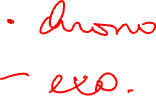 · chrono
- exo.